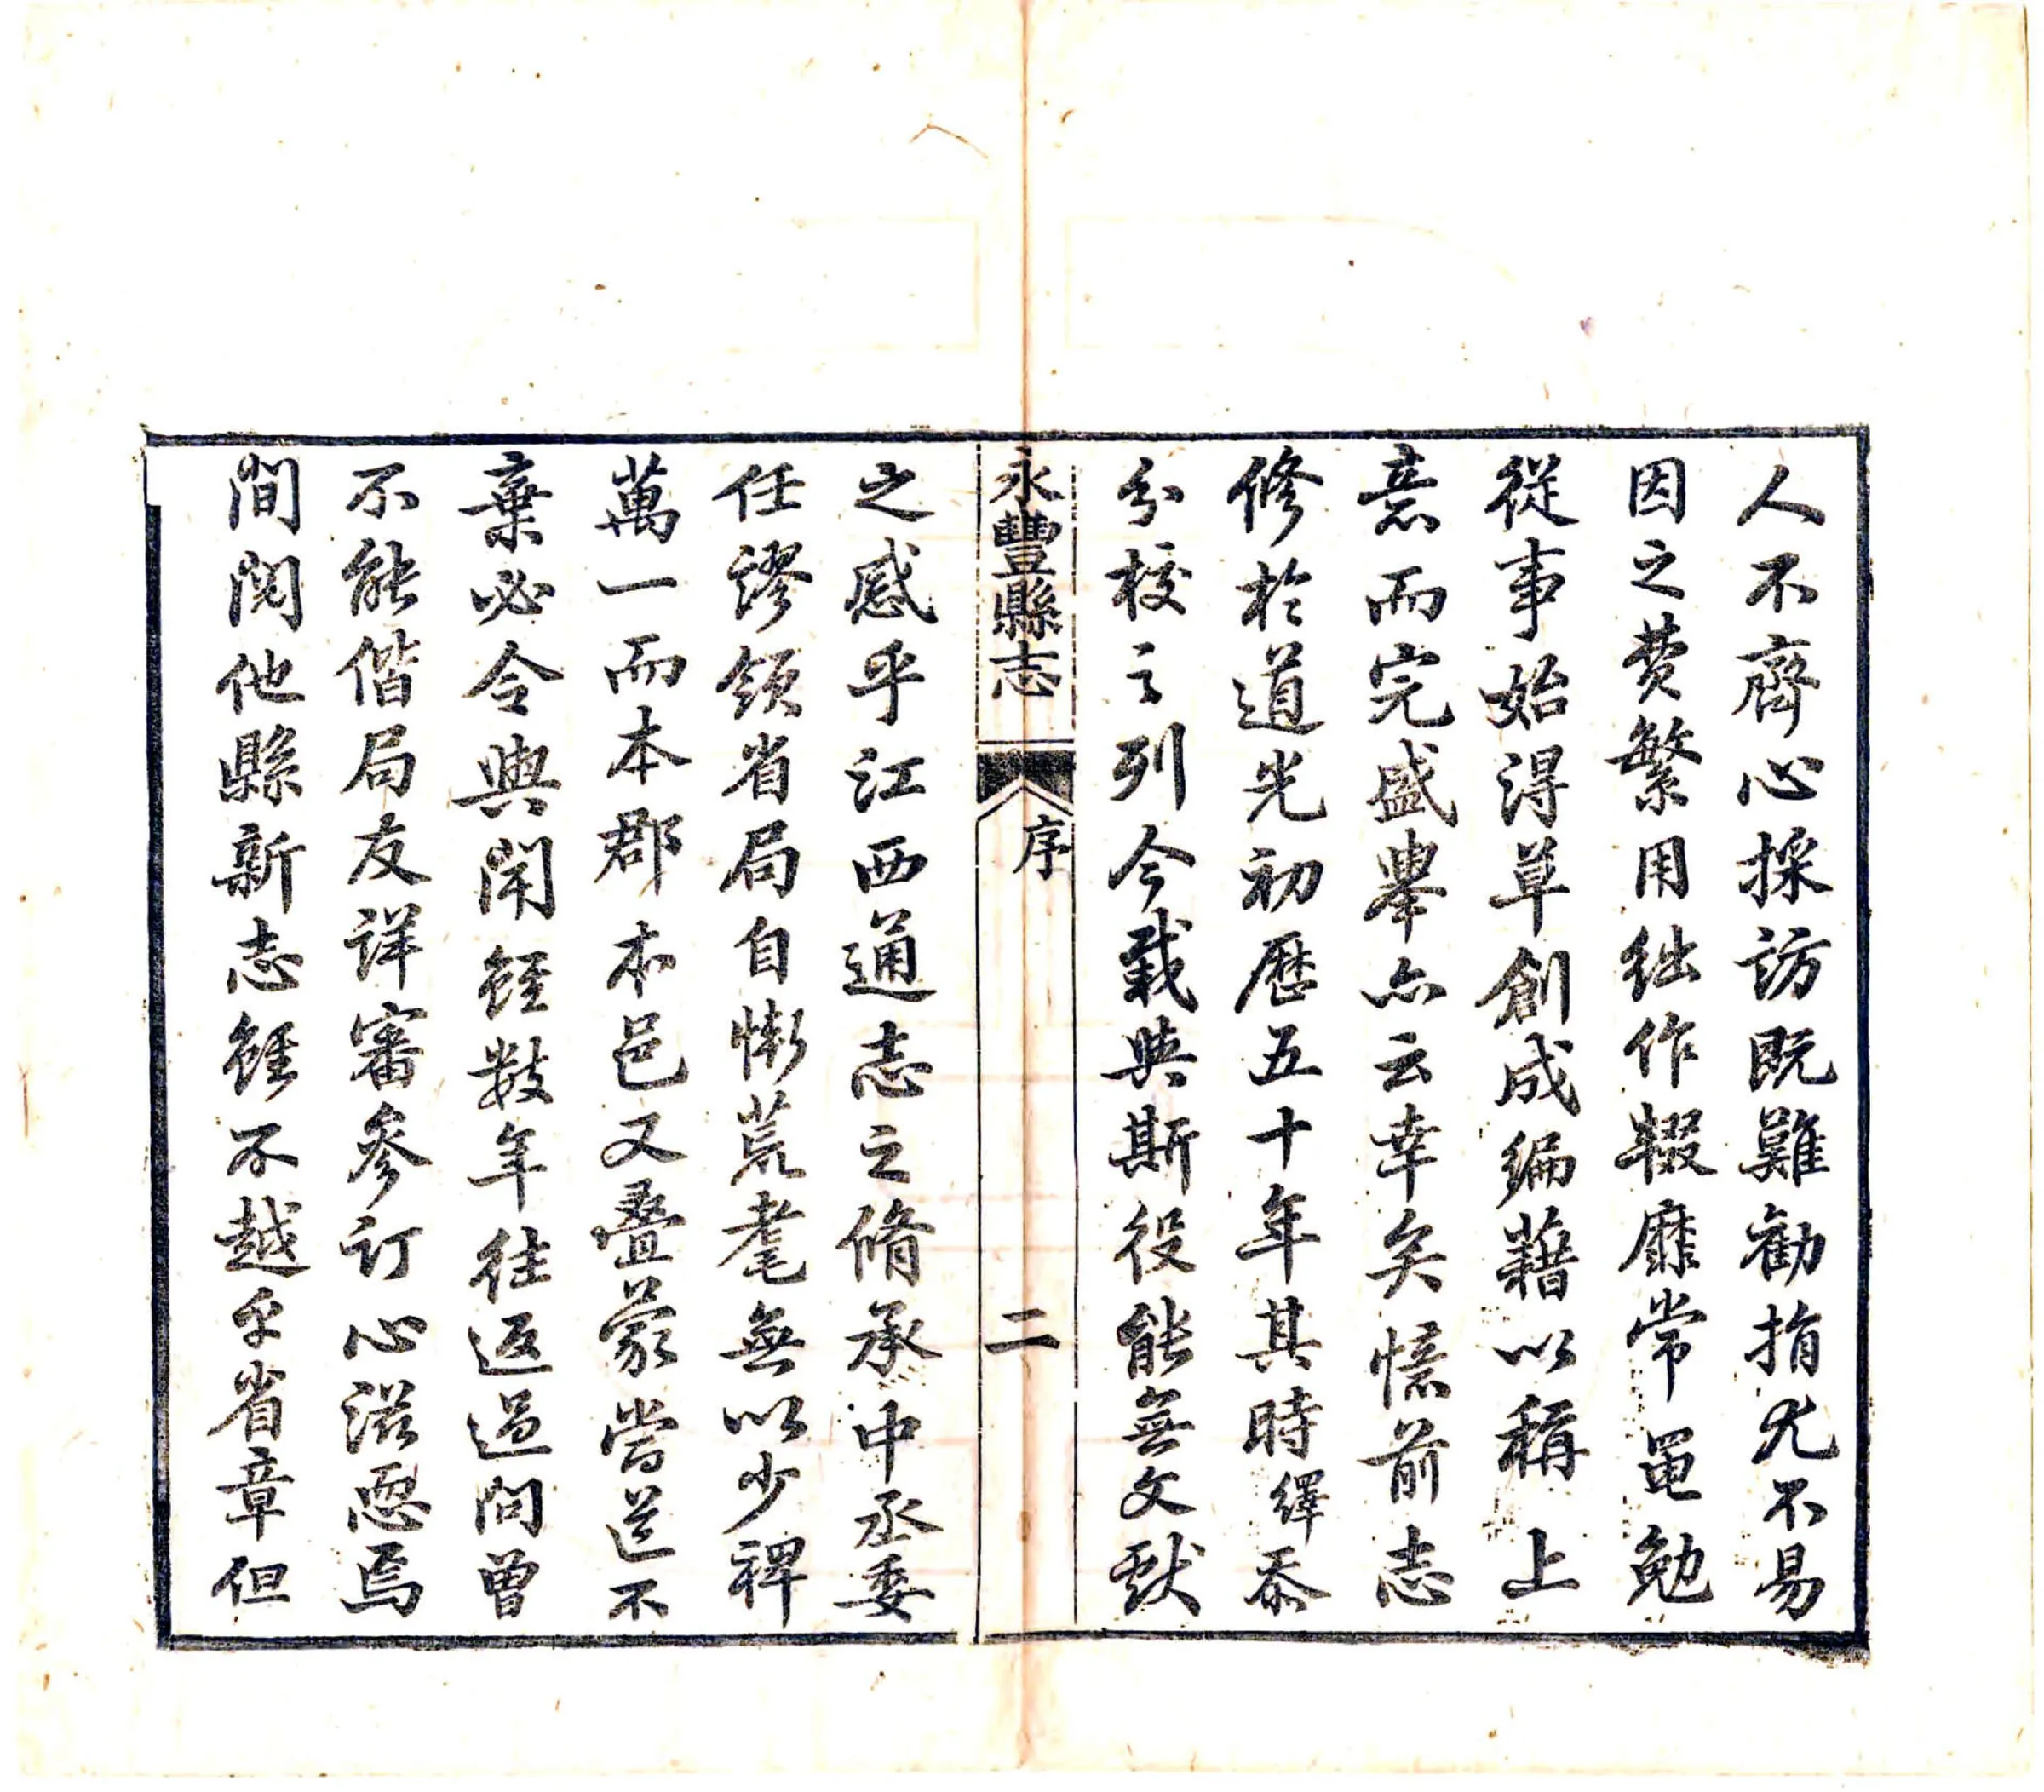 人不齊心採訪既難勸捐尤不易
因之费繁用絀作輟靡常黽勉
從事始得草創成編藉以稱上
意而完盛舉亦云幸矣憶前志
修於道光初歷五十年其時繹忝
分校之列今載與斯役能無文獻
永豐縣志
序
二
之感乎江西通志之脩承中丞委
任謬領省局自慚荒耄無以少裨
萬一而本郡本邑又疊蒙當道不
棄必令與聞經數年往返過問曾
不能偕局友詳審參訂心滋恧焉
間閱他縣新志經不越乎省章但